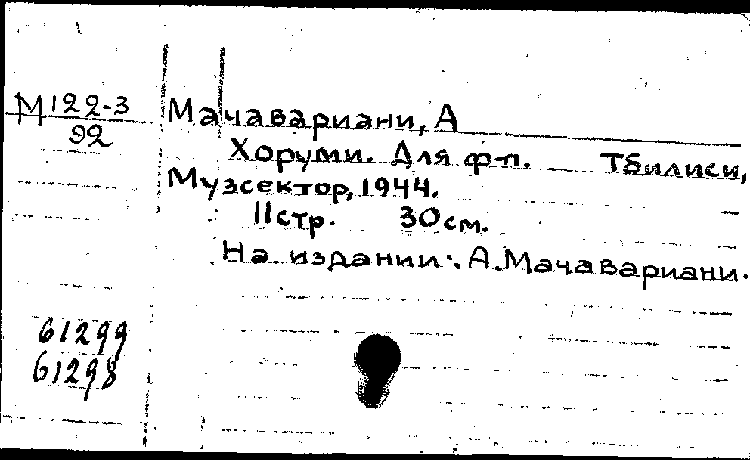 М 122-3
92
Мачавариани, А
Хоруми. Для ф-п. Тбилиси,
Музсектор, 1944.
11 стр. 30 см.
На издании: А. Мачавариани.
61299
61298